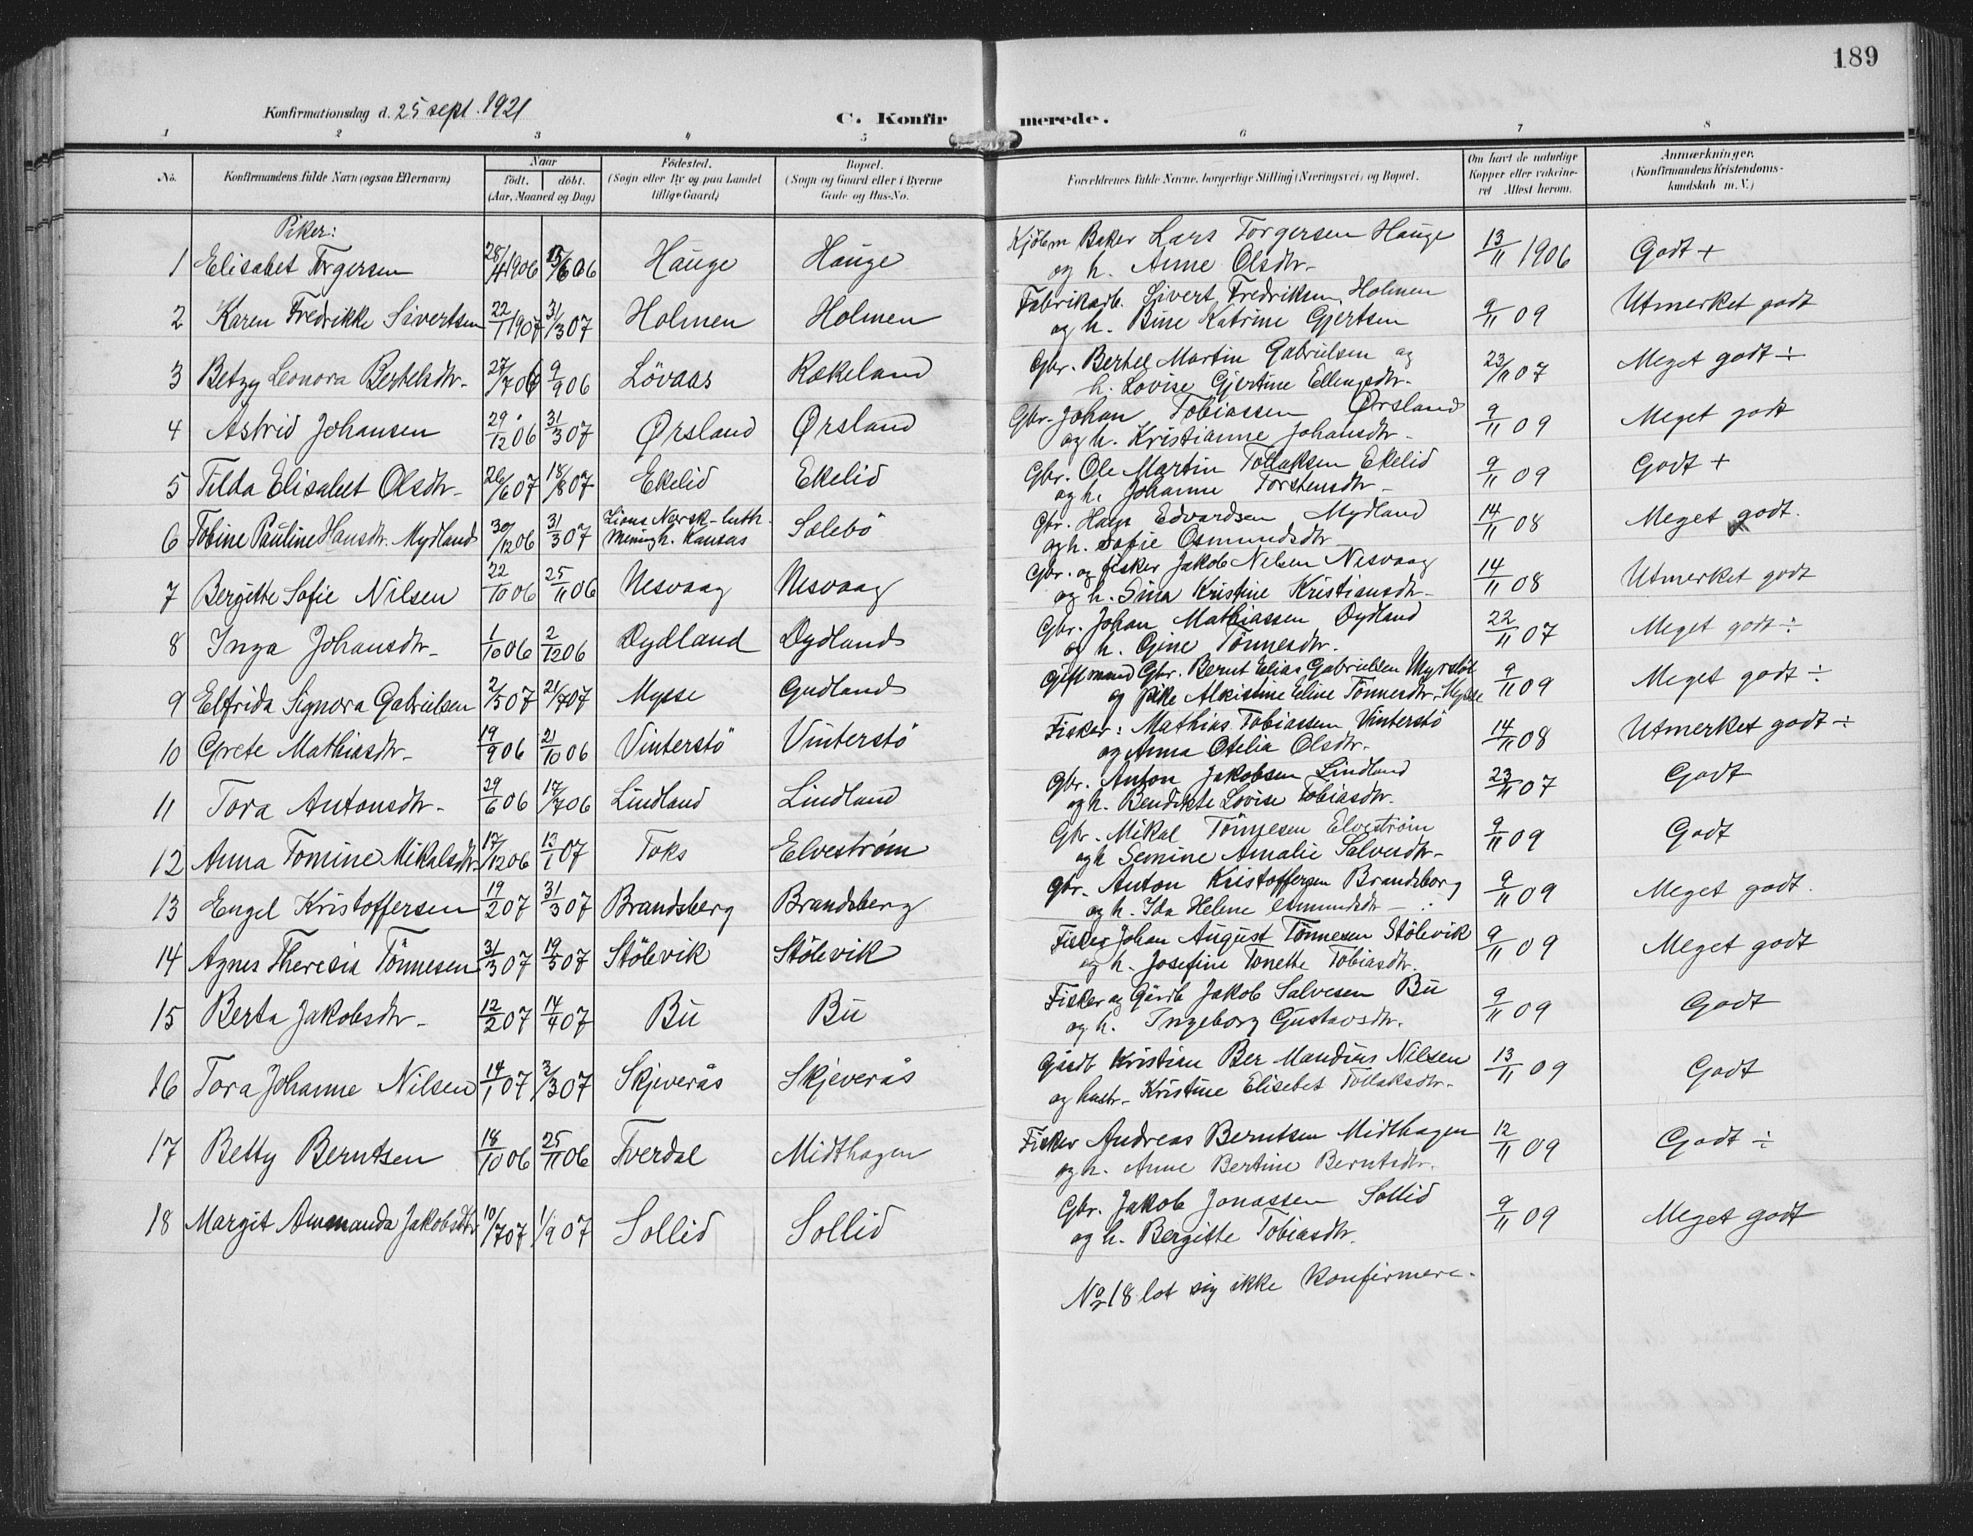 189
Konfirmationsdag d. 25 sept. 1921
C. Konfirmerede.
1 2 3 4 5 6 7 8
No. Konfirmandens fulde Navn (ogsaa Efternavn) Naar født. døbt. (Aar, Maaned og Dag) Fødested. (Sogn eller By og paa Landet tillige Gaard) Bopæl. (Sogn og Gaard eller i Byerne Gade og Hus-No.) Forældrenes fulde Navne, borgerlige Stilling (Næringsvei) og Bopæl. Om havt de naturlige Kopper eller vaccineret Attest herom. Anmærkninger. (Konfirmandens Kristendomskundskab m. V.)
Piker:
1 Elisabet Torgersen 28/4 1906 /6 06 Hauge Hauge Kjøbm Baker Lars Torgersen Hauge og h. Anne Olsdtr. 13/11 1906 Godt +
2 Karen Fredrikke Sivertsen 22/1 1907 31/3 07 Holmen Holmen Fabrikarb. Sivert Fredriksen Holmen og h. Bine Katrine Gjertsen 9/11 09 Utmerket godt
3 Betzy Leonora Bertelsdtr. 27/7 06 9/9 06 Løvaas Rækeland Gbr. Bertel Martin Gabrielsen og h. Lovise Gjertine Ellingsdtr. 23/11 07 Meget godt ÷
4 Astrid Johansen 29/12 06 31/3 07 Ørsland Ørsland Gbr. Johan Tobiassen Ørsland og h. Kristianne Johansdtr. 9/11 09 Meget godt
5 Tilda Elisabet Olsdtr. 26/6 07 18/8 07 Ekelid Ekelid Gbr. Ole Martin Tollaksen Ekelid og h. Johanne Torstensdtr. 9/11 09 Godt +
6 Tobine Pauline Hansdtr. Mydland 30/12 06 31/3 07 Lions Norsk-luth. Menigh. Kansas Sælebø Gbr. Hans Edvardsen Mydland og h. Sofie Osmundsdtr. 14/11 08 Meget godt.
7 Bergitte Sofie Nilsen 22/10 06 25/11 06 Nesvaag Nesvaag Gbr. og fisker Jakob Nilsen Nesvaag og h. Sina Kristine Kristiansdtr. 14/11 08 Utmerket godt
8 Inga Johansdtr. 1/10 06 2/12 06 Dydland Dydland Gbr. Johan Mathiassen Dydland og h. Gine Tönnesdtr. 22/11 07 Meget godt ÷
9 Elfrida Signora Gabrielsen 2/5 07 21/7 07 Mysse Gudland Gift mand Gbr. Bernt Elias Gabrielsen og pike Alkistine Eline Tönnesdtr. Mysse 9/11 09 Meget godt ÷
10 Grete Mathiasdtr. 19/9 06 21/10 06 Vinterstö Vinterstö Fisker: Mathias Tobiassen Vinterstö og Anna Otelia Olsdtr. 14/11 08 Utmerket godt ÷
11 Tora Antonsdtr. 29/6 06 17/7 06 Lindland Lindland Gbr. Anton Jakobsen Lindland og h. Bendikte Lovise Tobiasdtr. 23/11 07 Godt
12 Anna Tomine Mikalsdtr. 17/12 06 13/1 07 Toks Elvestrøm Gbr. Mikal Tönnesen Elvestrøm og h Semine Amalie Salvesdtr. 9/11 09 Godt
13 Engel Kristoffersen 19/2 07 31/3 07 Brandsberg Brandsberg Gbr. Anton Kristoffersen Brandsberg og h. Ida Helene Osmundsdtr. 9/11 09 Meget godt.
14 Agnes Theresia Tönnesen 31/3 07 19/5 07 Stölevik Stölevik Fisker Johan August Tönnesen Stölevik og h. Josefine Tonette Tobiasdtr. 9/11 09 Meget godt
15 Berta Jakobsdtr. 12/2 07 14/4 07 Bu Bu Fisker og Gårdb Jakob Salvesen Bu og h. Ingeborg Gustavsdtr. 9/11 09 Godt
16 Tora Johanne Nilsen 14/1 07 3/3 07 Skjeverås Skjeverås Gårdb Kristian Ber Mandius Nilsen og hustr. Kristine Elisebet Tollaksdtr. 13/11 09 Godt
17 Betty Berntsen 18/10 06 25/11 06 Tverdal Midthagen Fisker Andreas Berntsen Midthagen og h. Anne Bertine Berntsdtr. 12/11 09 Godt ÷
18 Margit Ammanda Jakobsdtr 10/7 07 1/9 07 Sollid Sollid Gbr. Jakob Jonassen Sollid og h. Bergitte Tobiasdtr. 9/11 09 Meget godt
No 18 lot sig ikke konfirmere.